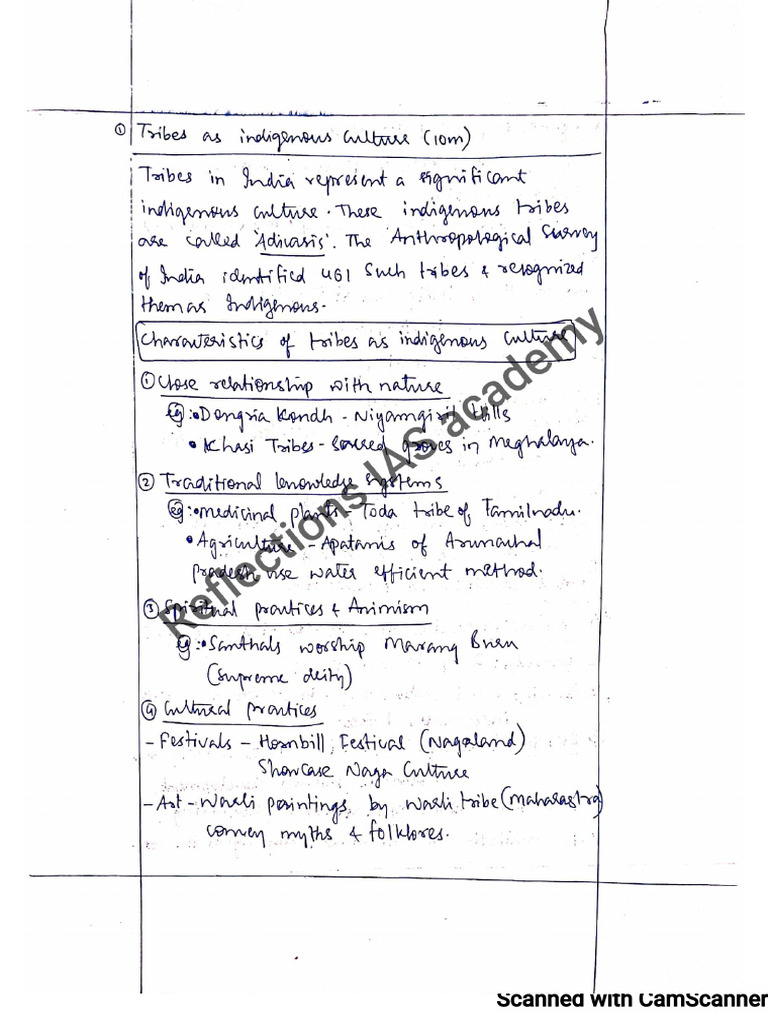 ① Tribes as indigenous culture (10m)
Tribes in India represent a significant
indigenous culture. These indigenous tribes
are called 'Adivasis'. The Anthropological Survey
of India identified 461 such tribes & recognized
them as Indigenous.
Characteristics of tribes as indigenous culture
① Close relationship with nature
eg:• Dongria Kondh - Niyamgiri Hills
• Khasi Tribes - Sacred groves in Meghalaya.
② Traditional knowledge systems
eg:• medicinal plants - Toda tribe of Tamilnadu.
• Agriculture - Apatamis of Arunachal
Pradesh use water efficient method.
③ Spiritual practices & Animism
eg:• Santhals worship Marang Buru
(Supreme deity)
④ Cultural practices
- Festivals - Hornbill Festival (Nagaland)
Showcase Naga Culture
- Art - Warli paintings by Warli tribe (Maharastra)
convey myths & folklores.
Reflections IAS academy
Scanned with CamScanner